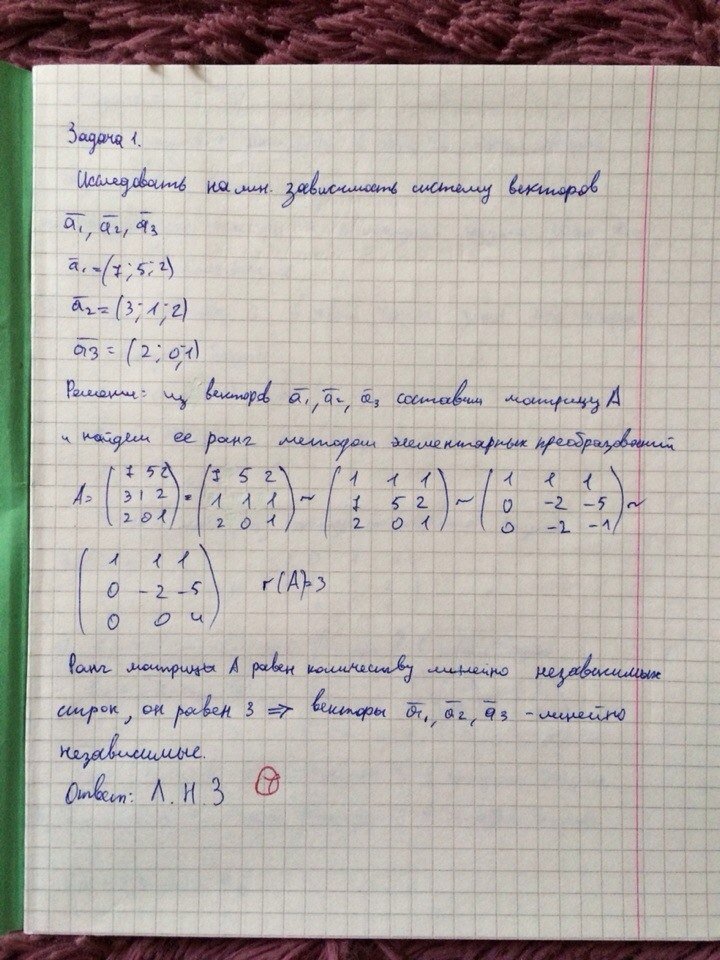 Задача 1.
Исследовать на лин. зависимость систему векторов
a̅₁, a̅₂, a̅₃
a̅₁=(7; 5; 2)
a̅₂=(3; 1; 2)
a̅₃=(2; 0; 1)
Решение: из векторов a̅₁, a̅₂, a̅₃ составим матрицу A
и найдем ее ранг методом элементарных преобразований
A= (7 5 2; 3 1 2; 2 0 1) = (7 5 2; 1 1 1; 2 0 1) ~ (1 1 1; 7 5 2; 2 0 1) ~ (1 1 1; 0 -2 -5; 0 -2 -1) ~
(1 1 1; 0 -2 -5; 0 0 4) r(A)=3
Ранг матрицы A равен количеству линейно независимых
строк, он равен 3 => векторы a̅₁, a̅₂, a̅₃ - линейно
независимые.
Ответ: Л. Н. З